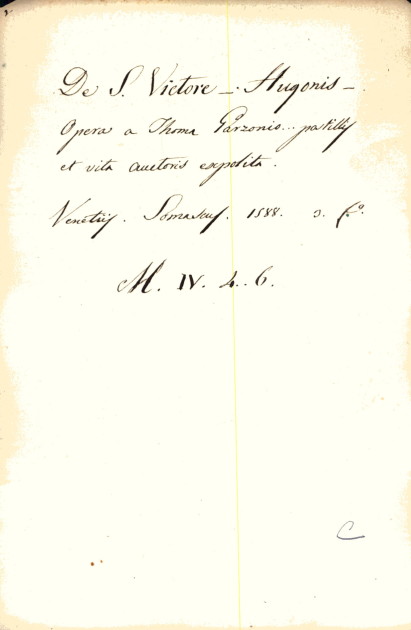 De S. Victore _. Hugonis _
Opera a Thoma Garzonio... postillis
et vita auctoris expolita.
Venetijs. Somascus. 1588. 3. f.º
M. IV. 4. 6.
C